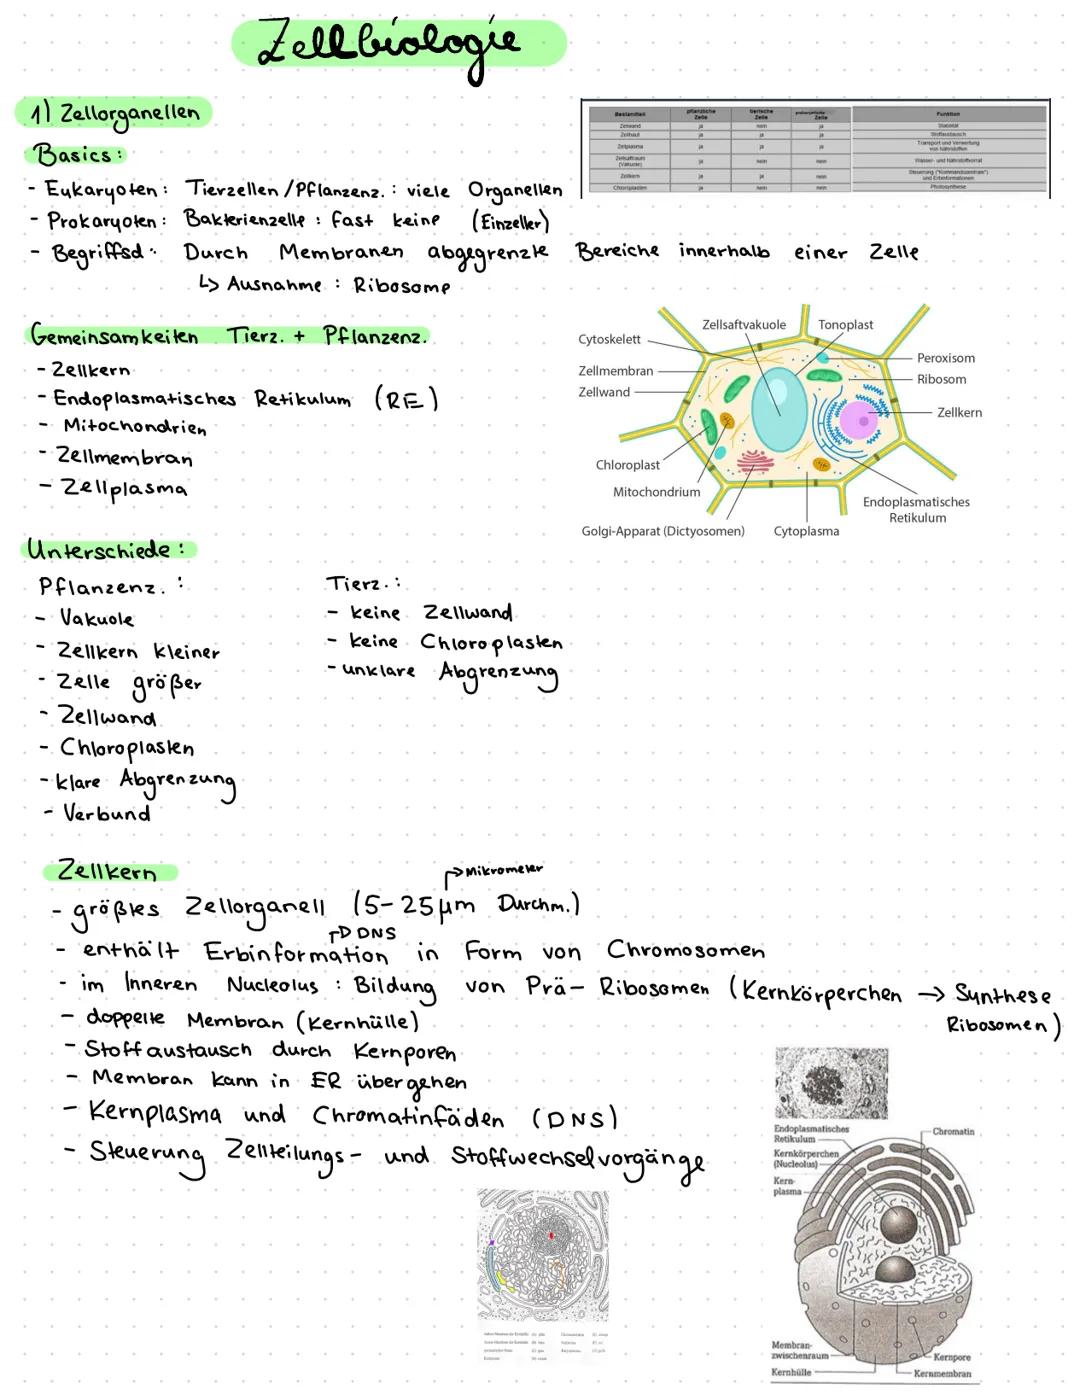 Zellbiologie
1) Zellorganellen
Basics:
- Eukaryoten: Tierzellen/Pflanzenz.: viele Organellen
- Prokaryoten: Bakterienzelle: fast keine (Einzeller)
- Begriffsd.: Durch Membranen abgegrenzte Bereiche innerhalb einer Zelle
↳ Ausnahme: Ribosome
Bestandteil pflanzliche Zelle tierische Zelle Zelle Funktion
Zellwand ja nein ja Stabilität
Zellhaut ja ja ja Stoffaustausch
Zellplasma ja ja ja Transport und Verwertung von Nährstoffen
Zellsaftraum (Vakuole) ja nein nein Wasser- und Nährstoffvorrat
Zellkern ja ja nein Steuerung ("Kommandozentrale") und Erbinformationen
Chloroplasten ja nein nein Photosynthese
Gemeinsamkeiten Tierz. + Pflanzenz.
- Zellkern
- Endoplasmatisches Retikulum (RE)
- Mitochondrien
- Zellmembran
- Zellplasma
Zellsaftvakuole
Tonoplast
Cytoskelett
Peroxisom
Zellmembran
Ribosom
Zellwand
Zellkern
Chloroplast
Mitochondrium
Endoplasmatisches
Retikulum
Golgi-Apparat (Dictyosomen)
Cytoplasma
Unterschiede:
Pflanzenz.:
- Vakuole
- Zellkern kleiner
- Zelle größer
- Zellwand
- Chloroplasten
- klare Abgrenzung
- Verbund
Tierz.:
- keine Zellwand
- keine Chloroplasten
- unklare Abgrenzung
Zellkern
→ Mikrometer
- größtes Zellorganell (5-25 µm Durchm.)
→ DNS
- enthält Erbinformation in Form von Chromosomen
- im Inneren Nucleolus: Bildung von Prä-Ribosomen (Kernkörperchen → Synthese
Ribosomen)
- doppelte Membran (Kernhülle)
- Stoffaustausch durch Kernporen
- Membran kann in ER übergehen
- Kernplasma und Chromatinfäden (DNS)
- Steuerung Zellteilungs- und Stoffwechselvorgänge
Endoplasmatisches
Retikulum
Chromatin
Kernkörperchen
(Nucleolus)
Kern-
plasma
Membran-
zwischenraum
Kernpore
Kernhülle
Kernmembran